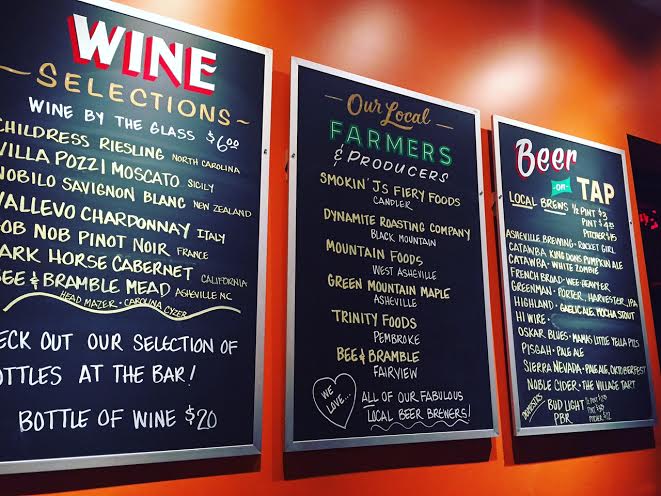 WINE
SELECTIONS
WINE BY THE GLASS $6.00
CHILDRESS RIESLING NORTH CAROLINA
VILLA POZZI MOSCATO SICILY
NOBILO SAVIGNON BLANC NEW ZEALAND
VALLEVO CHARDONNAY ITALY
OB NOB PINOT NOIR FRANCE
ARK HORSE CABERNET CALIFORNIA
BEE & BRAMBLE MEAD ASHEVILLE NC
HEAD MAZER · CAROLINA CYZER
ECK OUT OUR SELECTION OF
OTTLES AT THE BAR!
BOTTLE OF WINE $20
Our Local
FARMERS
& PRODUCERS
SMOKIN' J'S FIERY FOODS
CANDLER
DYNAMITE ROASTING COMPANY
BLACK MOUNTAIN
MOUNTAIN FOODS
WEST ASHEVILLE
GREEN MOUNTAIN MAPLE
ASHEVILLE
TRINITY FOODS
PEMBROKE
BEE & BRAMBLE
FAIRVIEW
WE LOVE... ALL OF OUR FABULOUS
LOCAL BEER BREWERS!
Beer
-ON-
TAP
LOCAL BREWS ½ PINT $3
PINT $4.25
PITCHER $15
ASHEVILLE BREWING · ROCKET GIRL
CATAWBA KING DONS PUMPKIN ALE
CATAWBA · WHITE ZOMBIE
FRENCH BROAD · WEE-HEAVY-ER
GREENMAN · PORTER, HARVESTER, IPA
HIGHLAND · GAELIC ALE, MOCHA STOUT
HI WIRE ·
OSKAR BLUES · MAMAS LITTLE YELLA PILS
PISGAH · PALE ALE
SIERRA NEVADA · PALE ALE, OKTOBERFEST
NOBLE CIDER · THE VILLAGE TART
DOMESTICS BUD LIGHT ½ PINT
PBR PINT
PITCHER $12